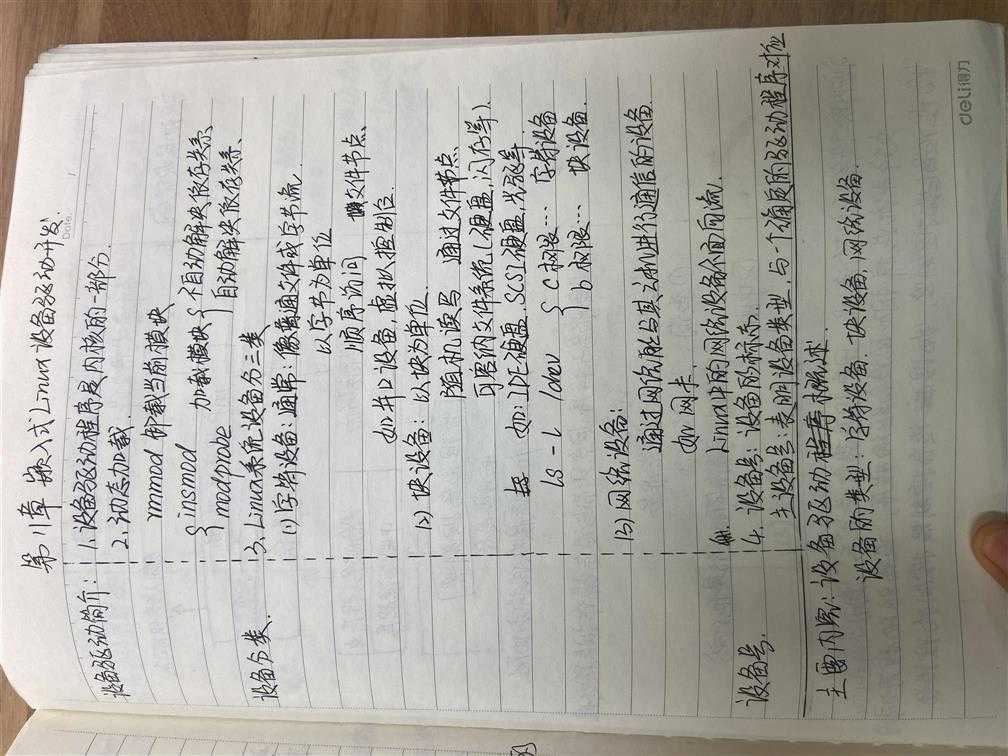 第11章 嵌入式Linux设备驱动开发.
Date.
设备驱动简介: 1.设备驱动程序是内核的一部分.
2.动态加载.
rmmod 卸载当前模块
{ insmod 加载模块 { 不自动解决依存关系、
modprobe 自动解决依存关系.
设备分类、 3、Linux系统设备分三类
(1)字符设备: 通常: 像普通文件或字节流
以字节为单位
顺序访问 文件节点、
如:串口设备,虚拟控制台.
(2)块设备: 以块为单位.
随机读写 通过文件节点.
可容纳文件系统(硬盘,闪存等).
如: IDE硬盘. SCSI硬盘 光驱等
ls -l /dev { c权限… 字符设备
b权限… 块设备.
(3)网络设备:
通过网络能与其它主机进行通信的设备.
如 网卡.
Linux中的网络设备介面向流.
设备号. 4. 设备号: 设备的标志.
主设备号: 表明设备类型,与一个确定的驱动程序对应
主要内容: 设备驱动程序概述
设备的类型: 字符设备, 块设备, 网络设备.
deli得力